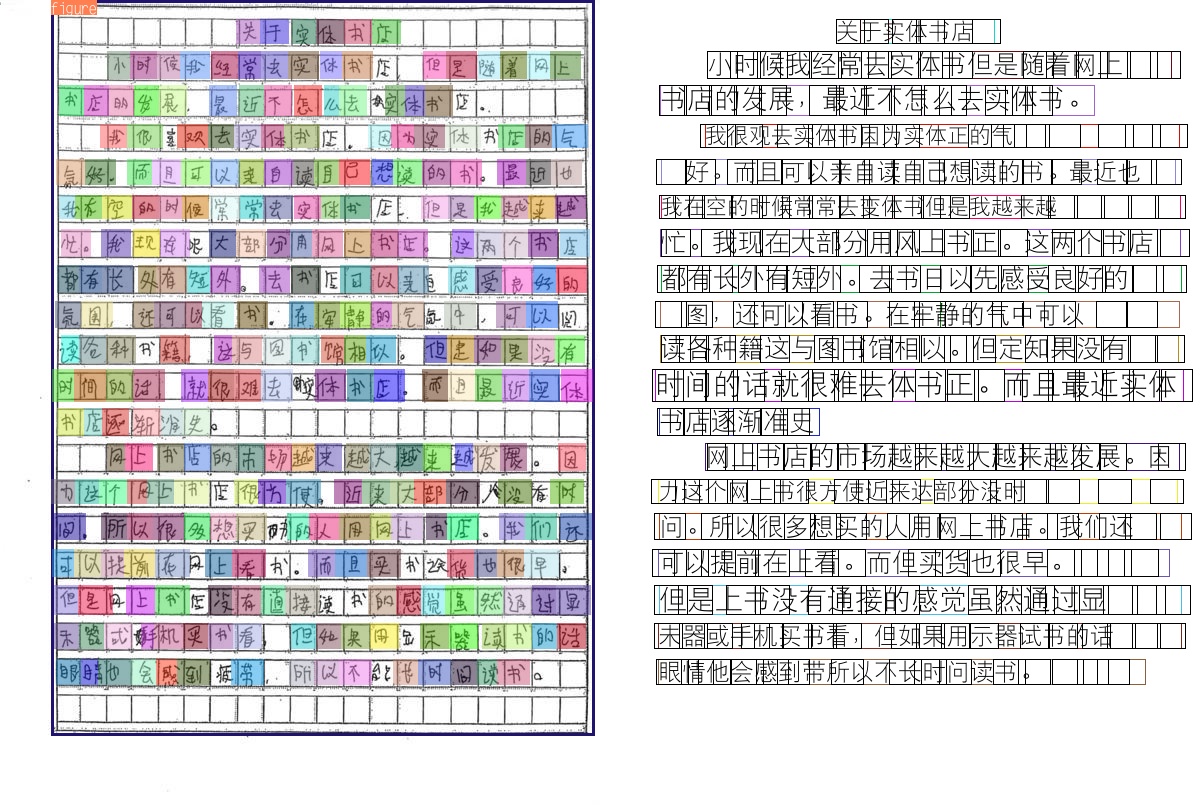 figure
关于实体书店
小时候我经常去实体书店，但是随着网上
书店的发展，最近不怎么去实体书店。
我很喜欢去实体书店。因为实体书店的气
氛好。而且可以亲自读自己想读的书。最近也
我在空的时候常常去实体书店。但是我越来越
忙。我现在很大部分用网上书店。这两个书店
都有长外有短外。去书店可以先自感受良好的
氛围，还可以看书。在牢静的气氛中，可以阅
读各种书籍，这与图书馆相似。但是如果没有
时间的话，就很难去实体书店。而且最近实体
书店逐渐消失。
网上书店的市场越来越大越来越发展。因
为这个网上书店很方便。近来大部分人没有时
间。所以很多想买书的人用网上书店。我们还
可以提前在网上看书。而且买书送货也很早。
但是网上书店没有直接读书的感觉虽然通过显
示器或手机买书看，但如果用显示器读书的话
眼睛也会感到疲带，所以不能长时间读书。
关于实体书店
小时候我经常去实体书但是随着网上
书店的发展，最近不怎么去实体书。
我很观去实体书因为实体正的气
好。而且可以亲自读自己想读的书。最近也
我在空的时候常常去变体书但是我越来越
忙。我现在大部分用风上书正。这两个书店
都有长外有短外。去书日以先感受良好的
图，还可以看书。在牢静的气中可以
读各种籍这与图书馆相以。但定知果没有
时间的话就很难去体书正。而且最近实体
书店逐渐准史
网上书店的市场越来越大越来越发展。困
力这个网上书很方使近来达部扮没时
问。所以很多想买的人用网上书店。我们还
可以提前在上看。而但买货也很早。
但是上书没有通接的感觉虽然通过显
未器或手机买书看，但如果用示器试书的话
眼情他会感到带所以不长时问读书。